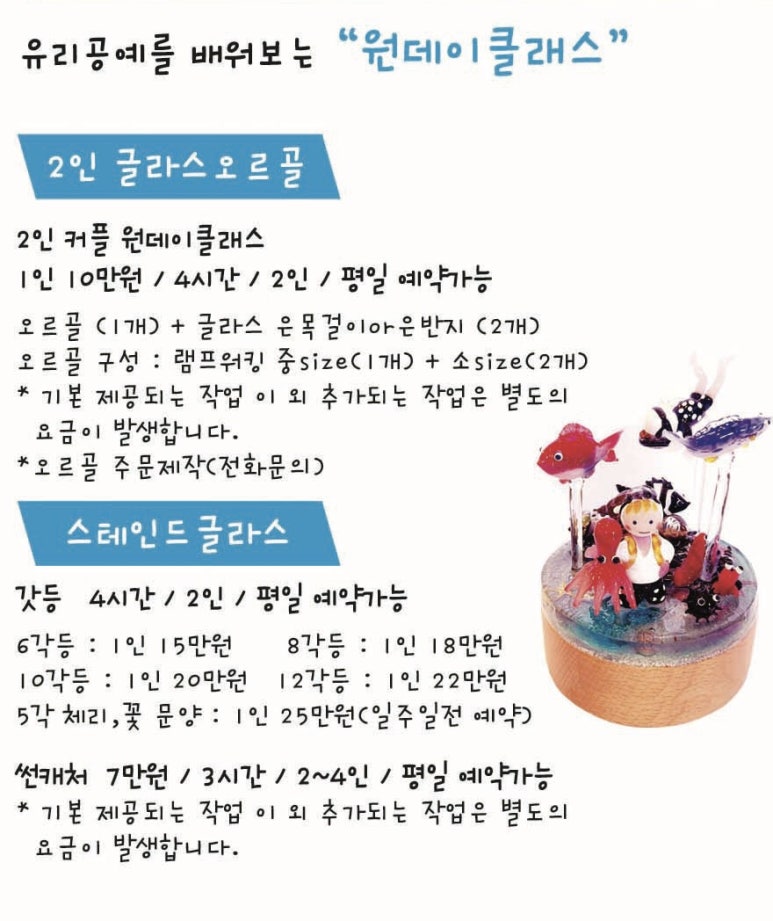 유리공예를 배워보는 “원데이클래스”
2인 글라스오르골
2인 커플 원데이클래스
1인 10만원 / 4시간 / 2인 / 평일 예약가능
오르골 (1개) + 글라스 은목걸이아은반지 (2개)
오르골 구성 : 램프워킹 중size(1개) + 소size(2개)
* 기본 제공되는 작업 이 외 추가되는 작업은 별도의
요금이 발생합니다.
*오르골 주문제작(전화문의)
스테인드글라스
갓등 4시간 / 2인 / 평일 예약가능
6각등 : 1인 15만원 8각등 : 1인 18만원
10각등 : 1인 20만원 12각등 : 1인 22만원
5각 체리,꽃 문양 : 1인 25만원(일주일전 예약)
썬캐처 7만원 / 3시간 / 2~4인 / 평일 예약가능
* 기본 제공되는 작업 이 외 추가되는 작업은 별도의
요금이 발생합니다.